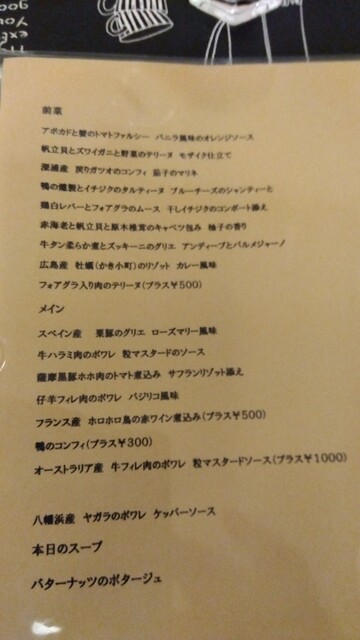 前菜
アボカドと蟹のトマトファルシー バニラ風味のオレンジソース
帆立貝とズワイガニと野菜のテリーヌ モザイク仕立て
深浦産 戻りガツオのコンフィ 茄子のマリネ
鴨の燻製とイチジクのタルティーヌ ブルーチーズのシャンティーと
鶏白レバーとフォアグラのムース 干しイチジクのコンポート添え
赤海老と帆立貝と原木椎茸のキャベツ包み 柚子の香り
牛タン柔らか煮とズッキーニのグリエ アンディーブとパルメジャーノ
広島産 牡蠣(かき小町)のリゾット カレー風味
フォアグラ入り肉のテリーヌ(プラス¥500)
メイン
スペイン産 栗豚のグリエ ローズマリー風味
牛ハラミ肉のポワレ 粒マスタードのソース
薩摩黒豚ホホ肉のトマト煮込み サフランリゾット添え
仔羊フィレ肉のポワレ バジリコ風味
フランス産 ホロホロ鳥の赤ワイン煮込み(プラス¥500)
鴨のコンフィ(プラス¥300)
オーストラリア産 牛フィレ肉のポワレ 粒マスタードソース(プラス¥1000)
八幡浜産 ヤガラのポワレ ケッパーソース
本日のスープ
バターナッツのポタージュ